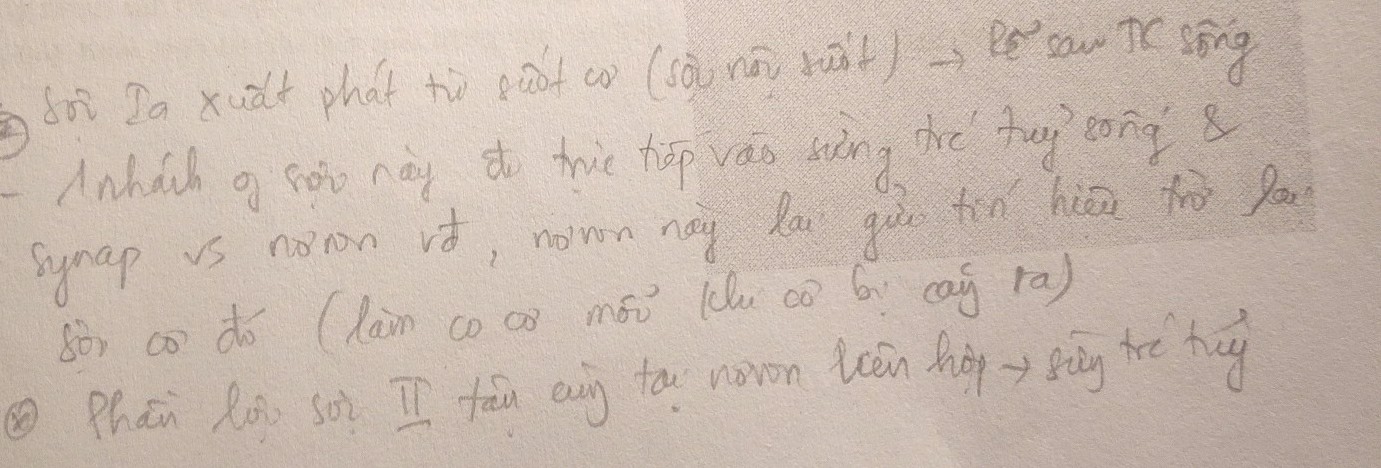 Sợi Ia xuất phát từ suốt cơ (sợi nội suốt) → Rễ sau TK sống
- 1 nhánh of sợi này đi trực tiếp vào sừng trc' tuỷ sống &
Synap vs nơron vđ, nơron này lại gửi tín hiệu trở lại
Sợi cơ đó (làm co cơ mỗi khi cơ bị căng ra)
⊗ Phần lợi sợi II tận cùng tại nơron liên hợp → sừng trc tuỷ